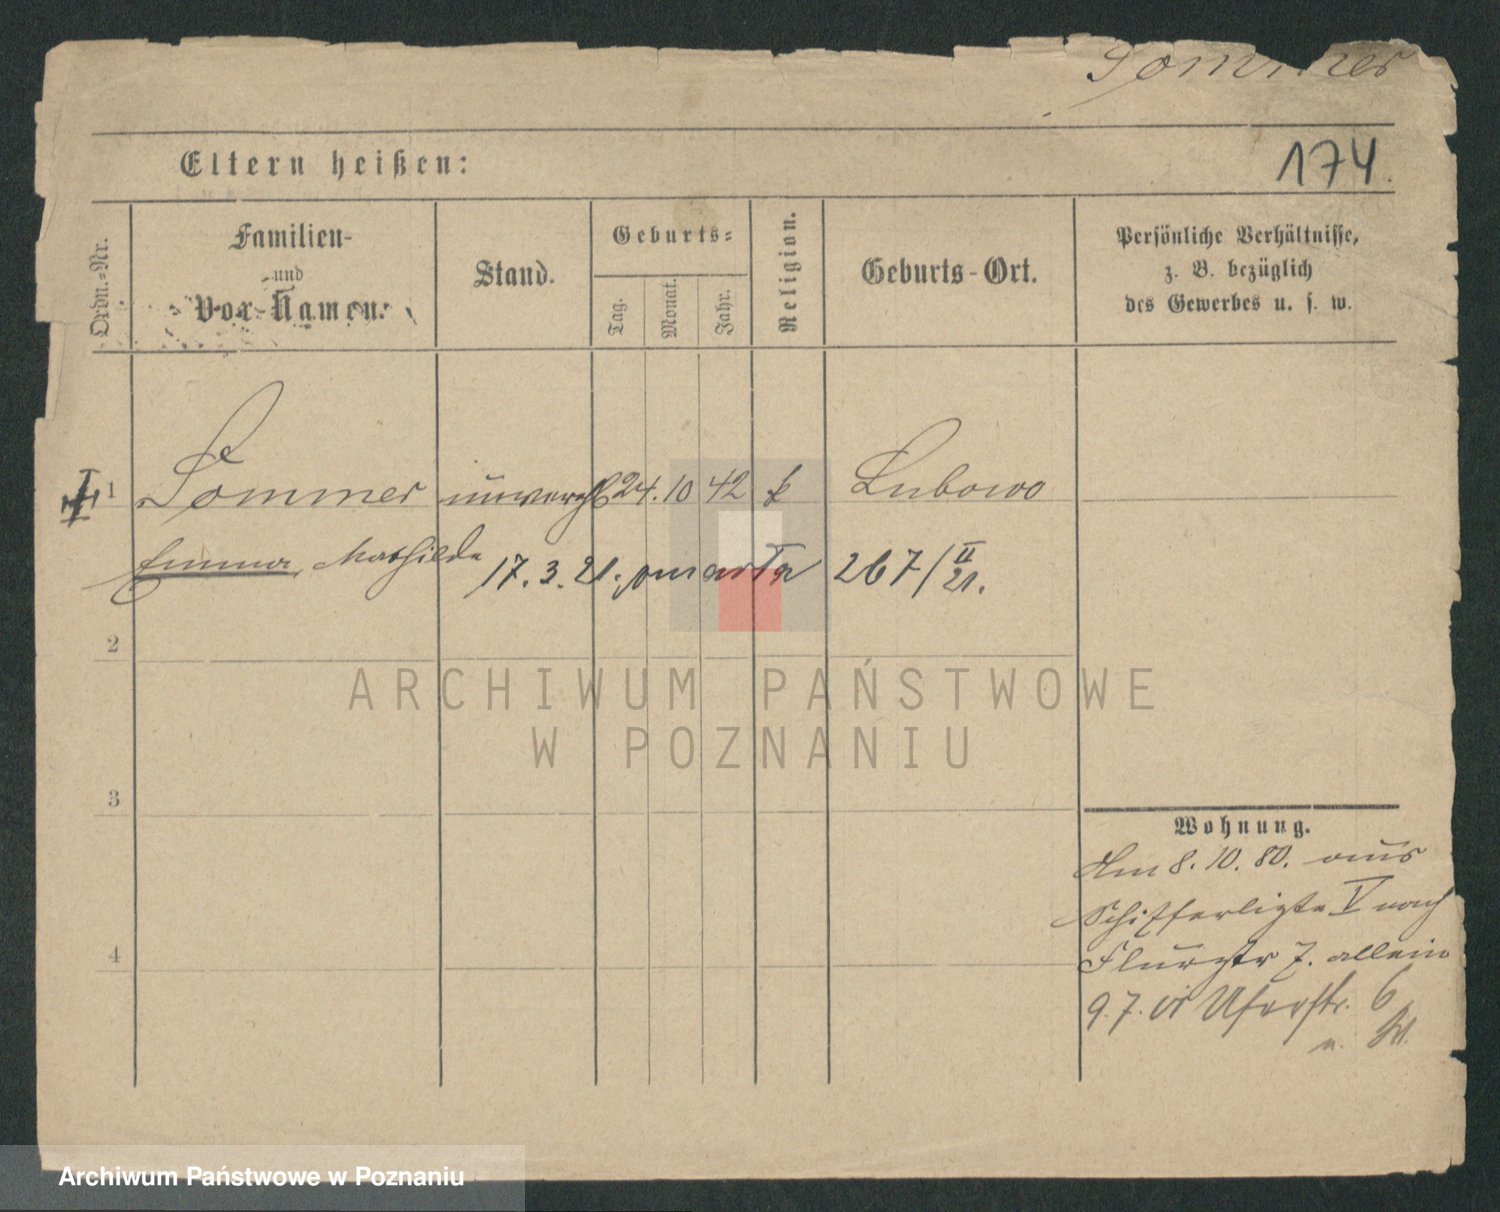 Sommer
Eltern heißen:
174.
Ordn.-Nr.
Familien-
und
Vor-Namen.
Stand.
Geburts-
Tag.
Monat.
Jahr.
Religion.
Geburts-Ort.
Persönliche Verhältnisse,
z. B. bezüglich
des Gewerbes u. s. w.
1 Sommer unvereh 24. 10 42 k Lubowo
Emma, Mathilde 17. 3. 21. zmarła 267/II 21.
2
ARCHIWUM PAŃSTWOWE
W POZNANIU
3
Wohnung.
Am 8. 10. 80. aus
V nach
Flurstr 7. allein
4
9. 7. 01 Uferstr. 6
n. W.
Archiwum Państwowe w Poznaniu